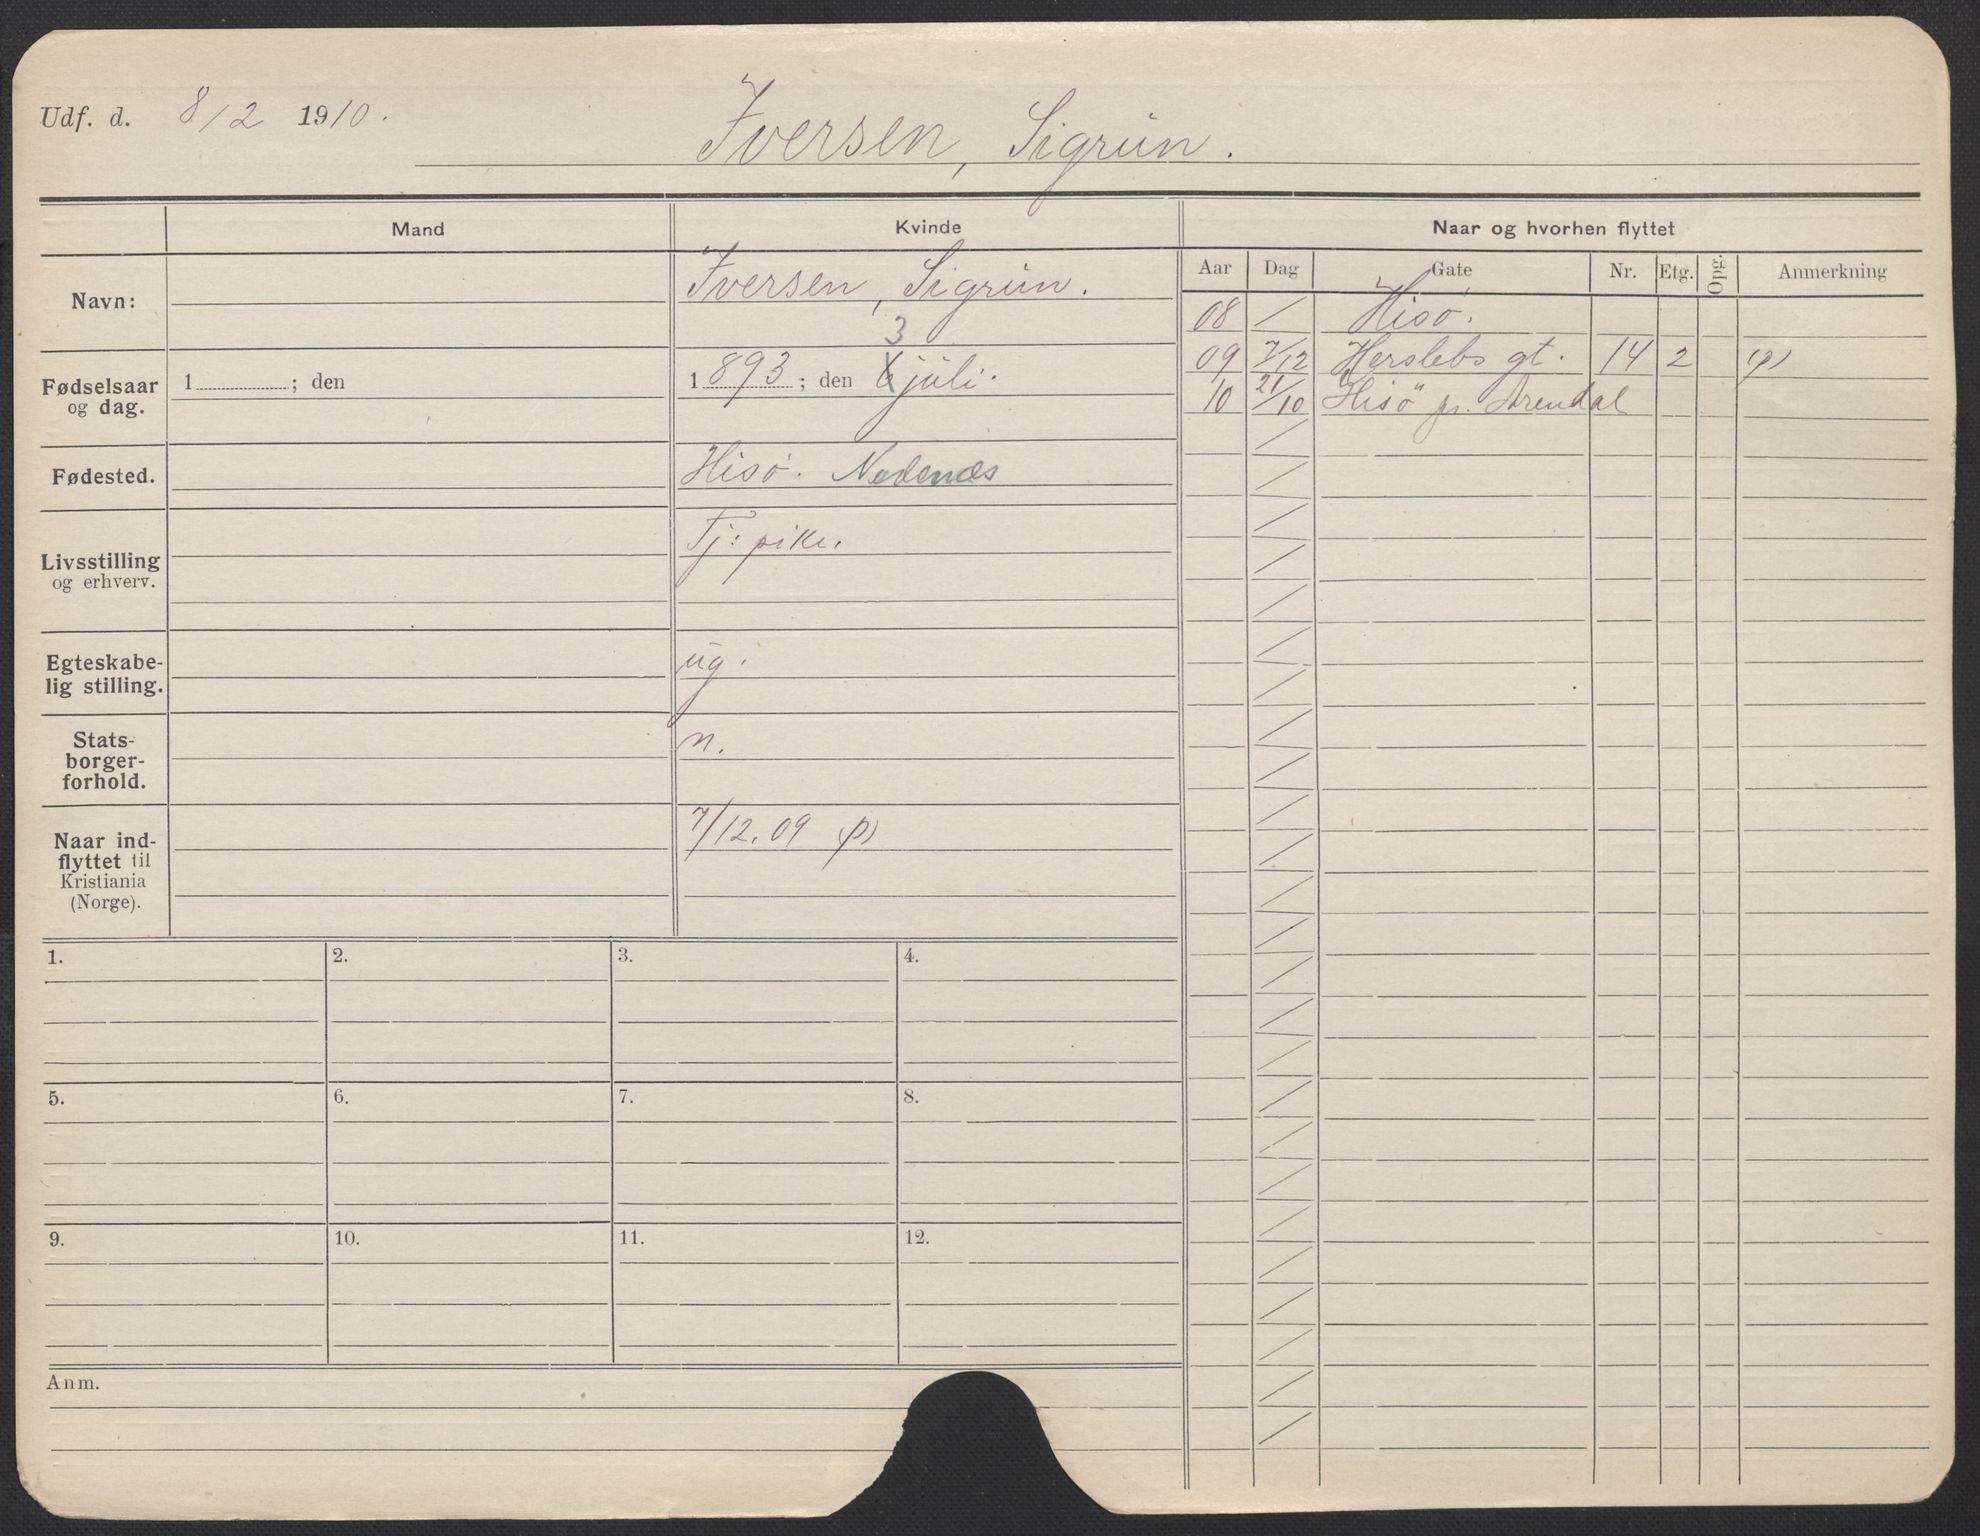 Udf. d. 8/2 1910.
Iversen, Sigrun.
Mand Kvinde Naar og hvorhen flyttet
Aar Dag Gate Nr. Etg. Opg. Anmerkning
Navn: Iversen, Sigrun.
08 / Hisø.
3
09 7/12 Herslebs gt. 14 2 (p)
Fødselsaar og dag. 1 ; den 1893 ; den 6 juli.
10 21/10 Hisö pr. Arendal
Fødested. Hisø. Nedenæs
Livsstilling og erhverv. Tj: pike.
Egteskabe-
lig stilling. ug.
Stats-
borger-
forhold. n.
Naar ind-
flyttet til
Kristiania
(Norge). 7/12.09 (p)
1. 2. 3. 4.
5. 6. 7. 8.
9. 10. 11. 12.
Anm.